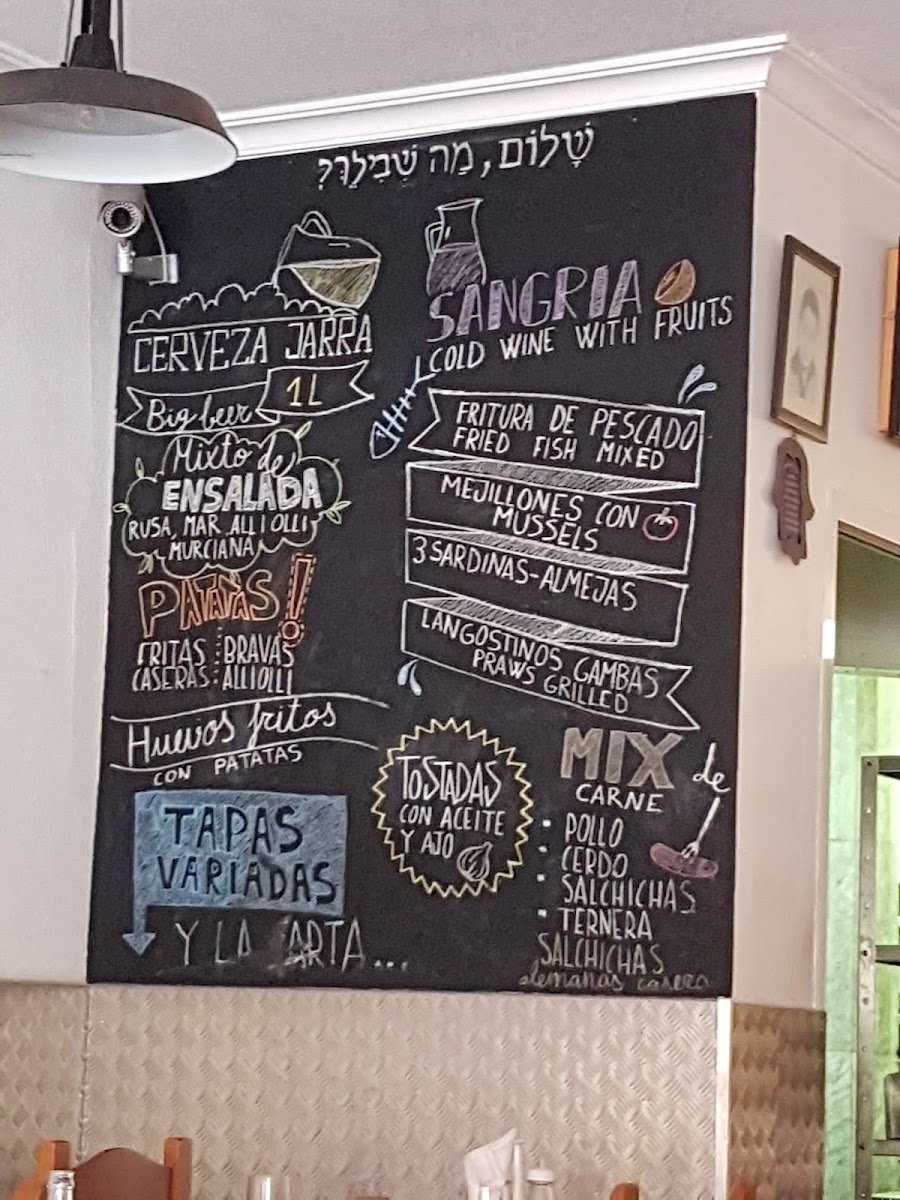 שָׁלוֹם, מַה שְׁבִילֵךְ?
CERVEZA JARRA
Big beer 1L
Mixto de
ENSALADA
RUSA, MAR, ALLIOLLI
MURCIANA
PATATAS!
FRITAS BRAVAS
CASERAS ALLIOLLI
Huevos fritos
CON PATATAS
TAPAS
VARIADAS
Y LA CARTA...
SANGRIA
COLD WINE WITH FRUITS
FRITURA DE PESCADO
FRIED FISH MIXED
MEJILLONES CON
MUSSELS
3 SARDINAS-ALMEJAS
LANGOSTINOS GAMBAS
PRAWS GRILLED
TOSTADAS
CON ACEITE
Y AJO
MIX de
CARNE
• POLLO
• CERDO
• SALCHICHAS
• TERNERA
SALCHICHAS
alemanas casera